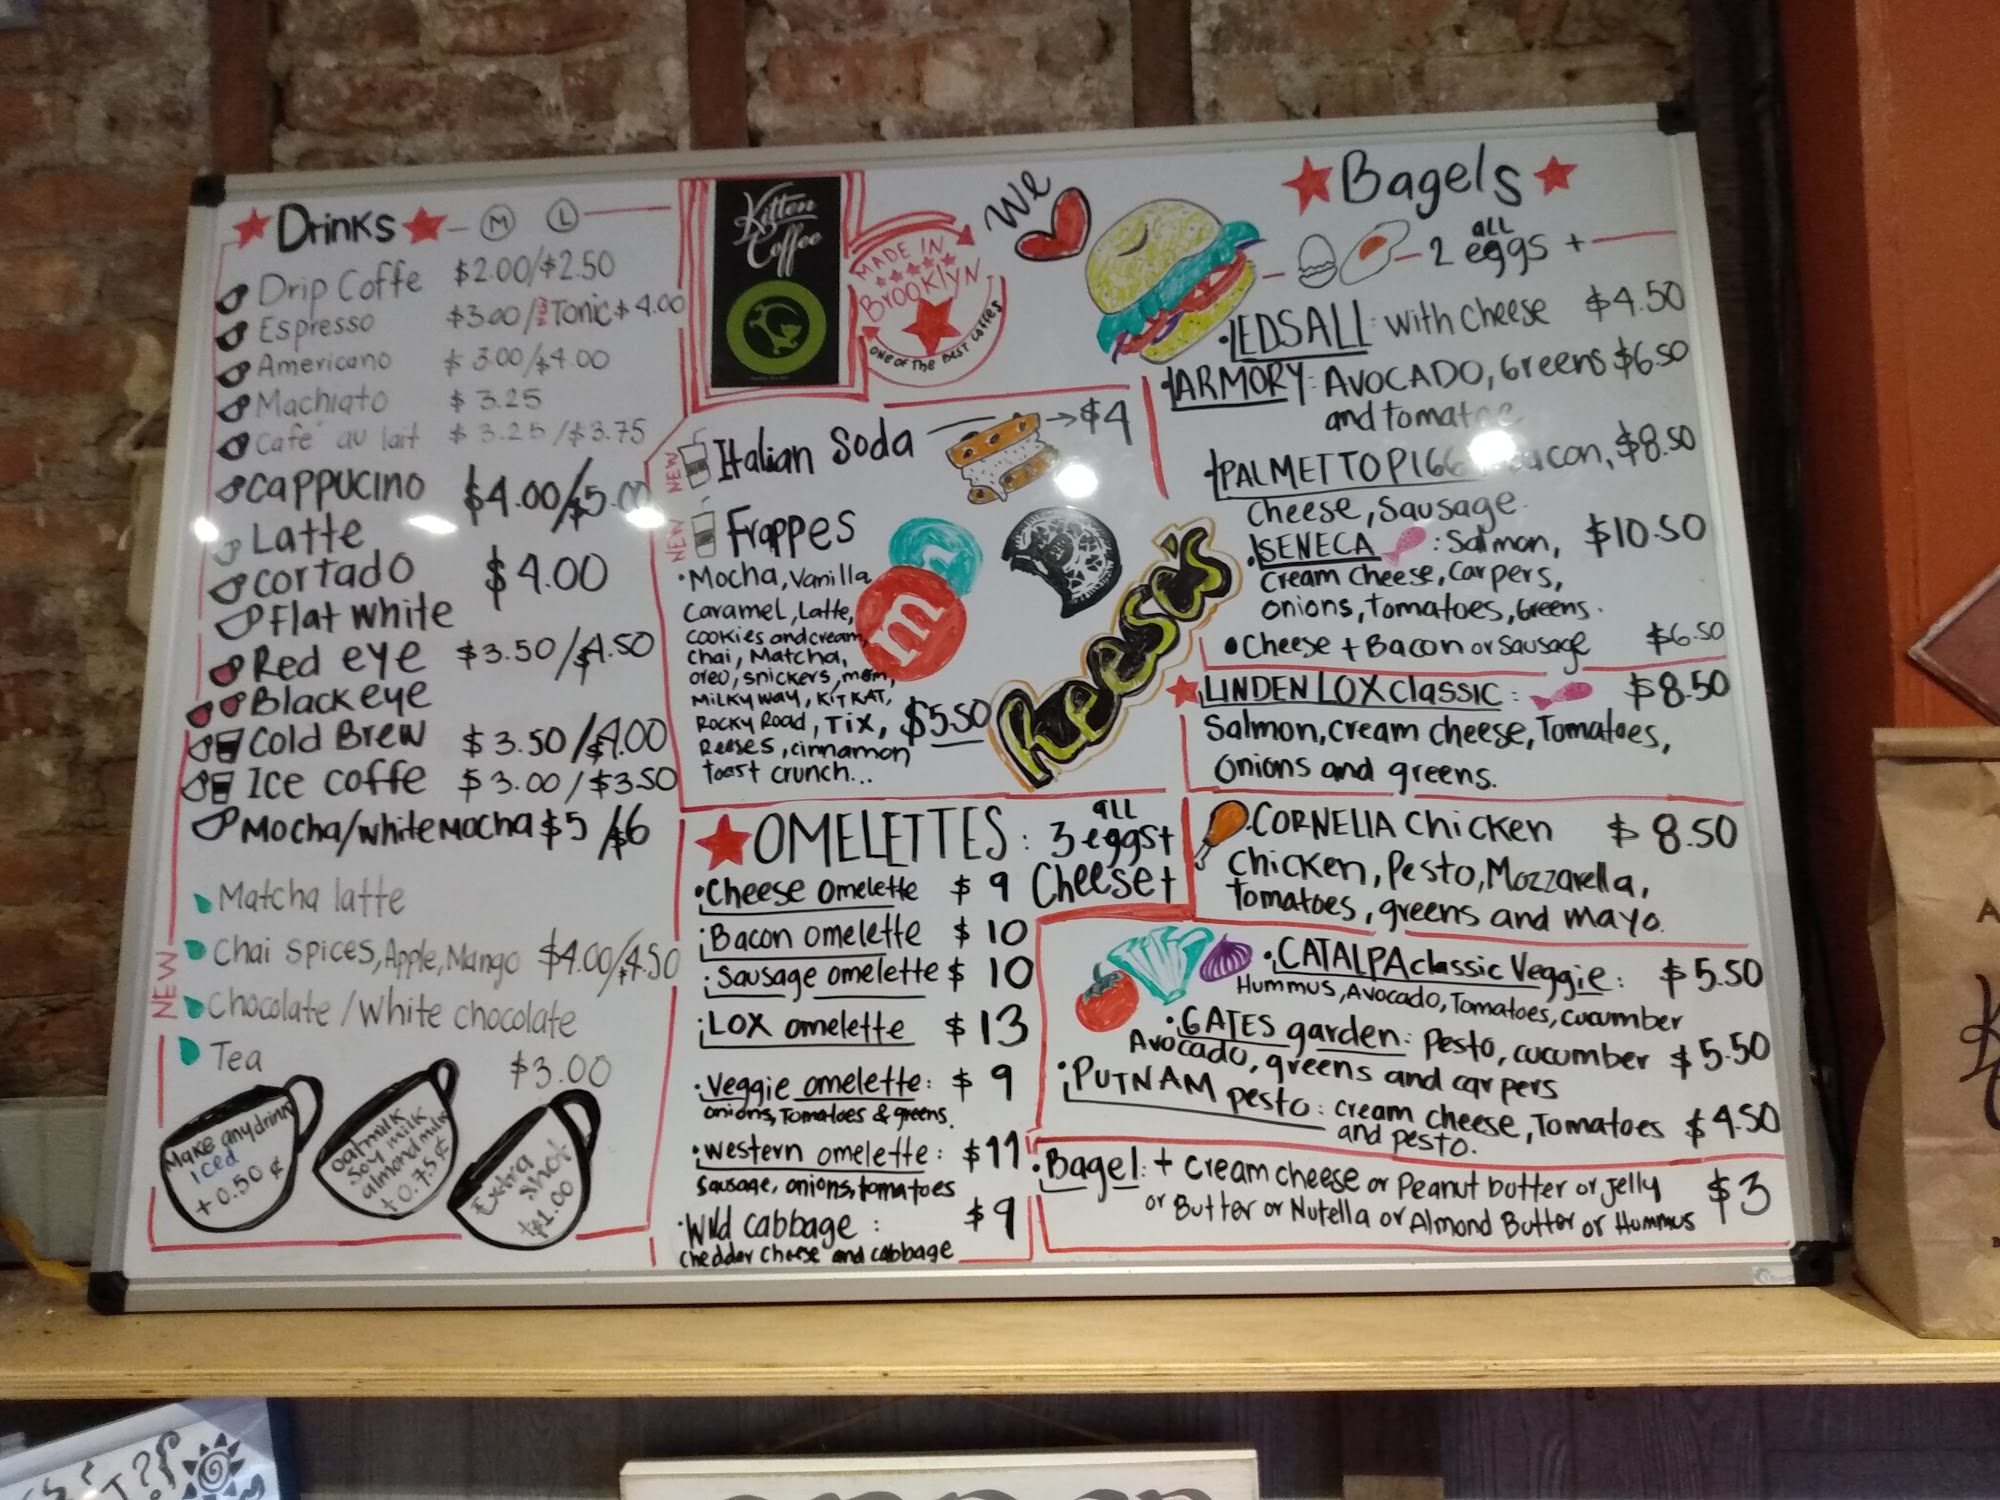 Drinks M L
Drip Coffe $2.00/$2.50
Espresso $3.00/ Tonic + 4.00
Americano $3.00/$4.00
Machiato $3.25
Cafe au lait $3.25/$3.75
Cappucino $4.00/$5.00
Latte
Cortado $4.00
Flat white
Red eye $3.50/$4.50
Black eye
Cold Brew $3.50/$4.00
Ice coffe $3.00/$3.50
Mocha/white Mocha $5/$6
Matcha latte
Chai spices, Apple, Mango $4.00/4.50
NEW
Chocolate/White chocolate
Tea $3.00
Make any drink
iced
+0.50¢
oatmilk
Soy milk
almond milk
+0.75¢
Extra
shot
+$1.00
Kitten
Coffee
MADE IN
Brooklyn
ONE OF THE BEST COFFEES
We
NEW
Italian Soda → $4
NEW
Frappes
• Mocha, Vanilla,
Caramel, Latte,
cookies and cream,
Chai, Matcha,
oreo, snickers, m&m,
MILKY WAY, KIT KAT,
ROCKY ROAD, TIX, $5.50
Reeses, cinnamon
toast crunch...
m
m
Reese's
OMELETTES: all 3 eggs +
Cheese +
• Cheese omelette $9
• Bacon omelette $10
• Sausage omelette $10
• LOX omelette $13
• Veggie omelette: $9
onions, Tomatoes & greens.
• Western omelette: $11
Sausage, onions, tomatoes
• Wild cabbage: $9
chedder cheese and cabbage
Bagels
all 2 eggs +
• EDSALL: with cheese $4.50
• ARMORY: AVOCADO, Greens $6.50
and tomatoe
• PALMETTO PIGG Bacon, $8.50
Cheese, Sausage.
• SENECA: Salmon, $10.50
cream cheese, carpers,
onions, Tomatoes, Greens.
• Cheese + Bacon or sausage $6.50
LINDEN LOX classic: $8.50
Salmon, cream cheese, Tomatoes,
onions and greens.
• CORNELIA Chicken $8.50
Chicken, Pesto, Mozzarella,
tomatoes, greens and mayo.
• CATALPA classic Veggie: $5.50
Hummus, Avocado, Tomatoes, cucumber
• GATES garden: Pesto, cucumber $5.50
Avocado, greens and carpers
• PUTNAM pesto: cream cheese, Tomatoes $4.50
and pesto.
• Bagel: + cream cheese or Peanut butter or jelly $3
or Butter or Nutella or Almond Butter or Hummus